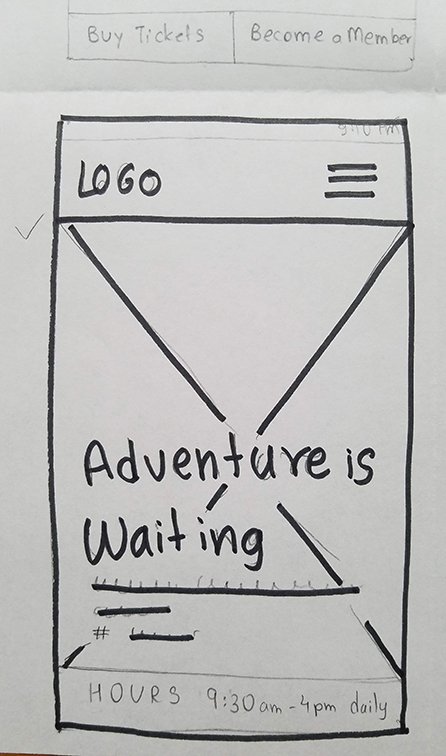 Buy Tickets
Become a Member
9:10 PM
LOGO
Adventure is
Waiting
#
HOURS 9:30am-4pm daily